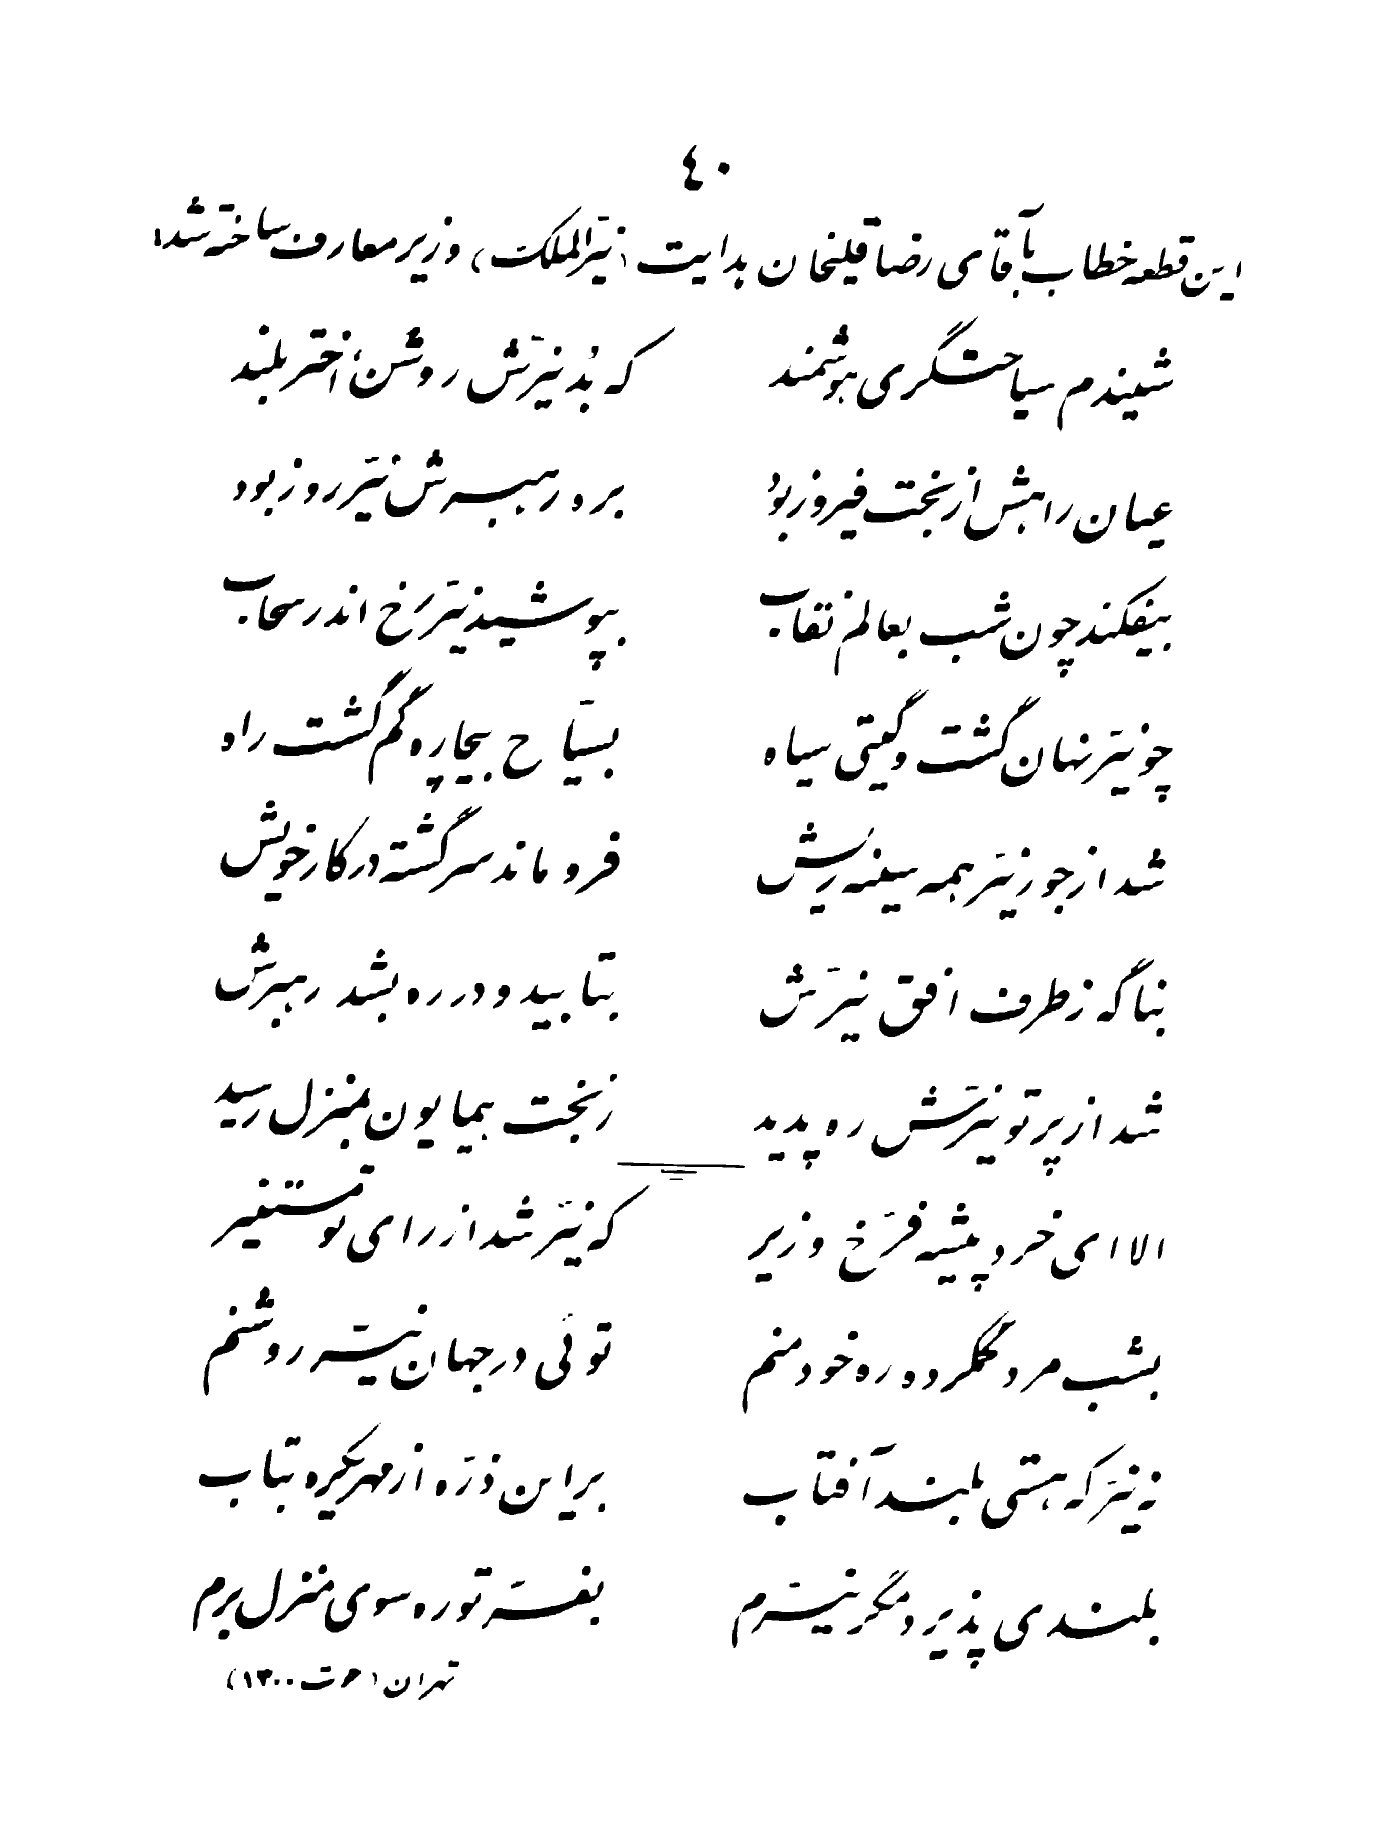 ٤٠
این قطعه خطاب بآقای رضاقلیخان هدایت (نیّرالملک) وزیر معارف ساخته شد:
شنیدم سیاحتگری هوشمند که بُد نیّرش روشن، اختر بلند
عیان راهش از بخت فیروز بوُد بره رهبرش نیّر روز بود
بیفکند چون شب بعالم نقاب بپوشید نیّر رُخ اندر سحاب
چو نیّر نهان گشت و گیتی سیاه بسیّاح بیچاره گم گشت راه
شد از جور نیّر همه سینه ریش فرو ماند سرگشته در کار خویش
بناگه ز طرف افق نیّرش بتابید و در ره بشد رهبرش
شد از پرتو نیّرش ره پدید ز بخت همایون بمنزل رسید
الا ای خرد پیشه فرّخ وزیر که نیّر شد از رای تو مستنیر
بشب مرد گمکرده ره خود منم توئی در جهان نیّر روشنم
نه نیّر که هستی بلند آفتاب بر این ذرّه از مهر یکره بتاب
بلندی پذیرد مگر نیّرم بفرّ تو ره سوی منزل برم
تهران (حوت ۱۳۰۰)